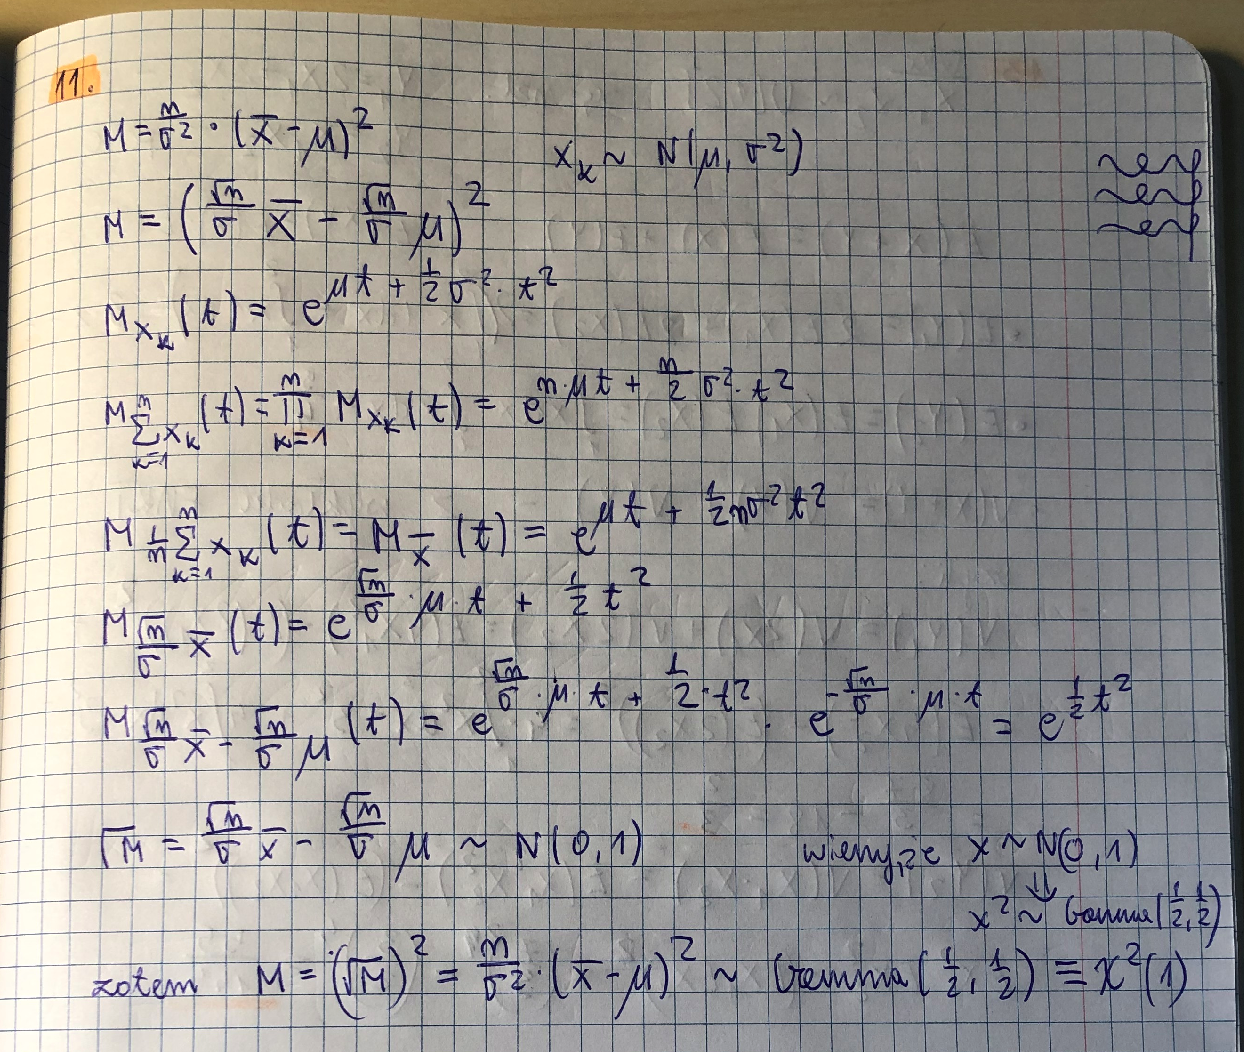 11.
M = n/σ² · (x̄ - μ)²
X_k ~ N(μ, σ²)
M = (√n/σ x̄ - √n/σ μ)²
M_{X_k}(t) = e^{μt + 1/2 σ² · t²}
M_{∑_{k=1}^{n} X_k}(t) = ∏_{k=1}^{n} M_{X_k}(t) = e^{n·μt + n/2 σ² · t²}
M_{1/n ∑_{k=1}^{n} X_k}(t) = M_{x̄}(t) = e^{μt + 1/2 nσ²t²}
M_{√n/σ x̄}(t) = e^{√n/σ · μ · t + 1/2 t²}
M_{√n/σ x̄ - √n/σ μ}(t) = e^{√n/σ · μ · t + 1/2 · t²} · e^{-√n/σ · μ · t} = e^{1/2 t²}
√M = √n/σ x̄ - √n/σ μ ~ N(0, 1)
wiemy, że X ~ N(0, 1)
⇓
X² ~ Gamma(1/2, 1/2)
zatem M = (√M)² = n/σ² · (x̄ - μ)² ~ Gamma(1/2, 1/2) ≡ χ²(1)